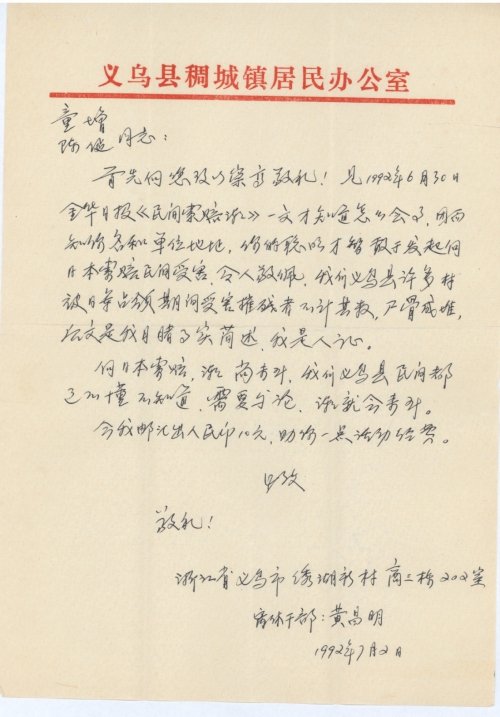 义乌县稠城镇居民办公室
童增
陈健 同志：
首先向您致以崇高敬礼！见1992年6月30日
金华日报《民间索赔潮》一文才知道怎么会了，因而
知你名和单位地址，你的聪明才智敢于发起向
日本索赔民间受害，令人敬佩，我们义乌县许多村
被日寇占领期间受害摧残者不计其数，尸骨成堆，
后文是我目睹事实简述，我是人证。
向日本索赔，潮 尚未升，我们义乌县民间都
还不懂不知道，需要讨论，潮就会升。
今我邮汇出人民币10元，助你一点活动经费。
此致
敬礼！
浙江省义乌市绣湖新村商三栋202室
离休干部：黄昌明
1992年7月2日